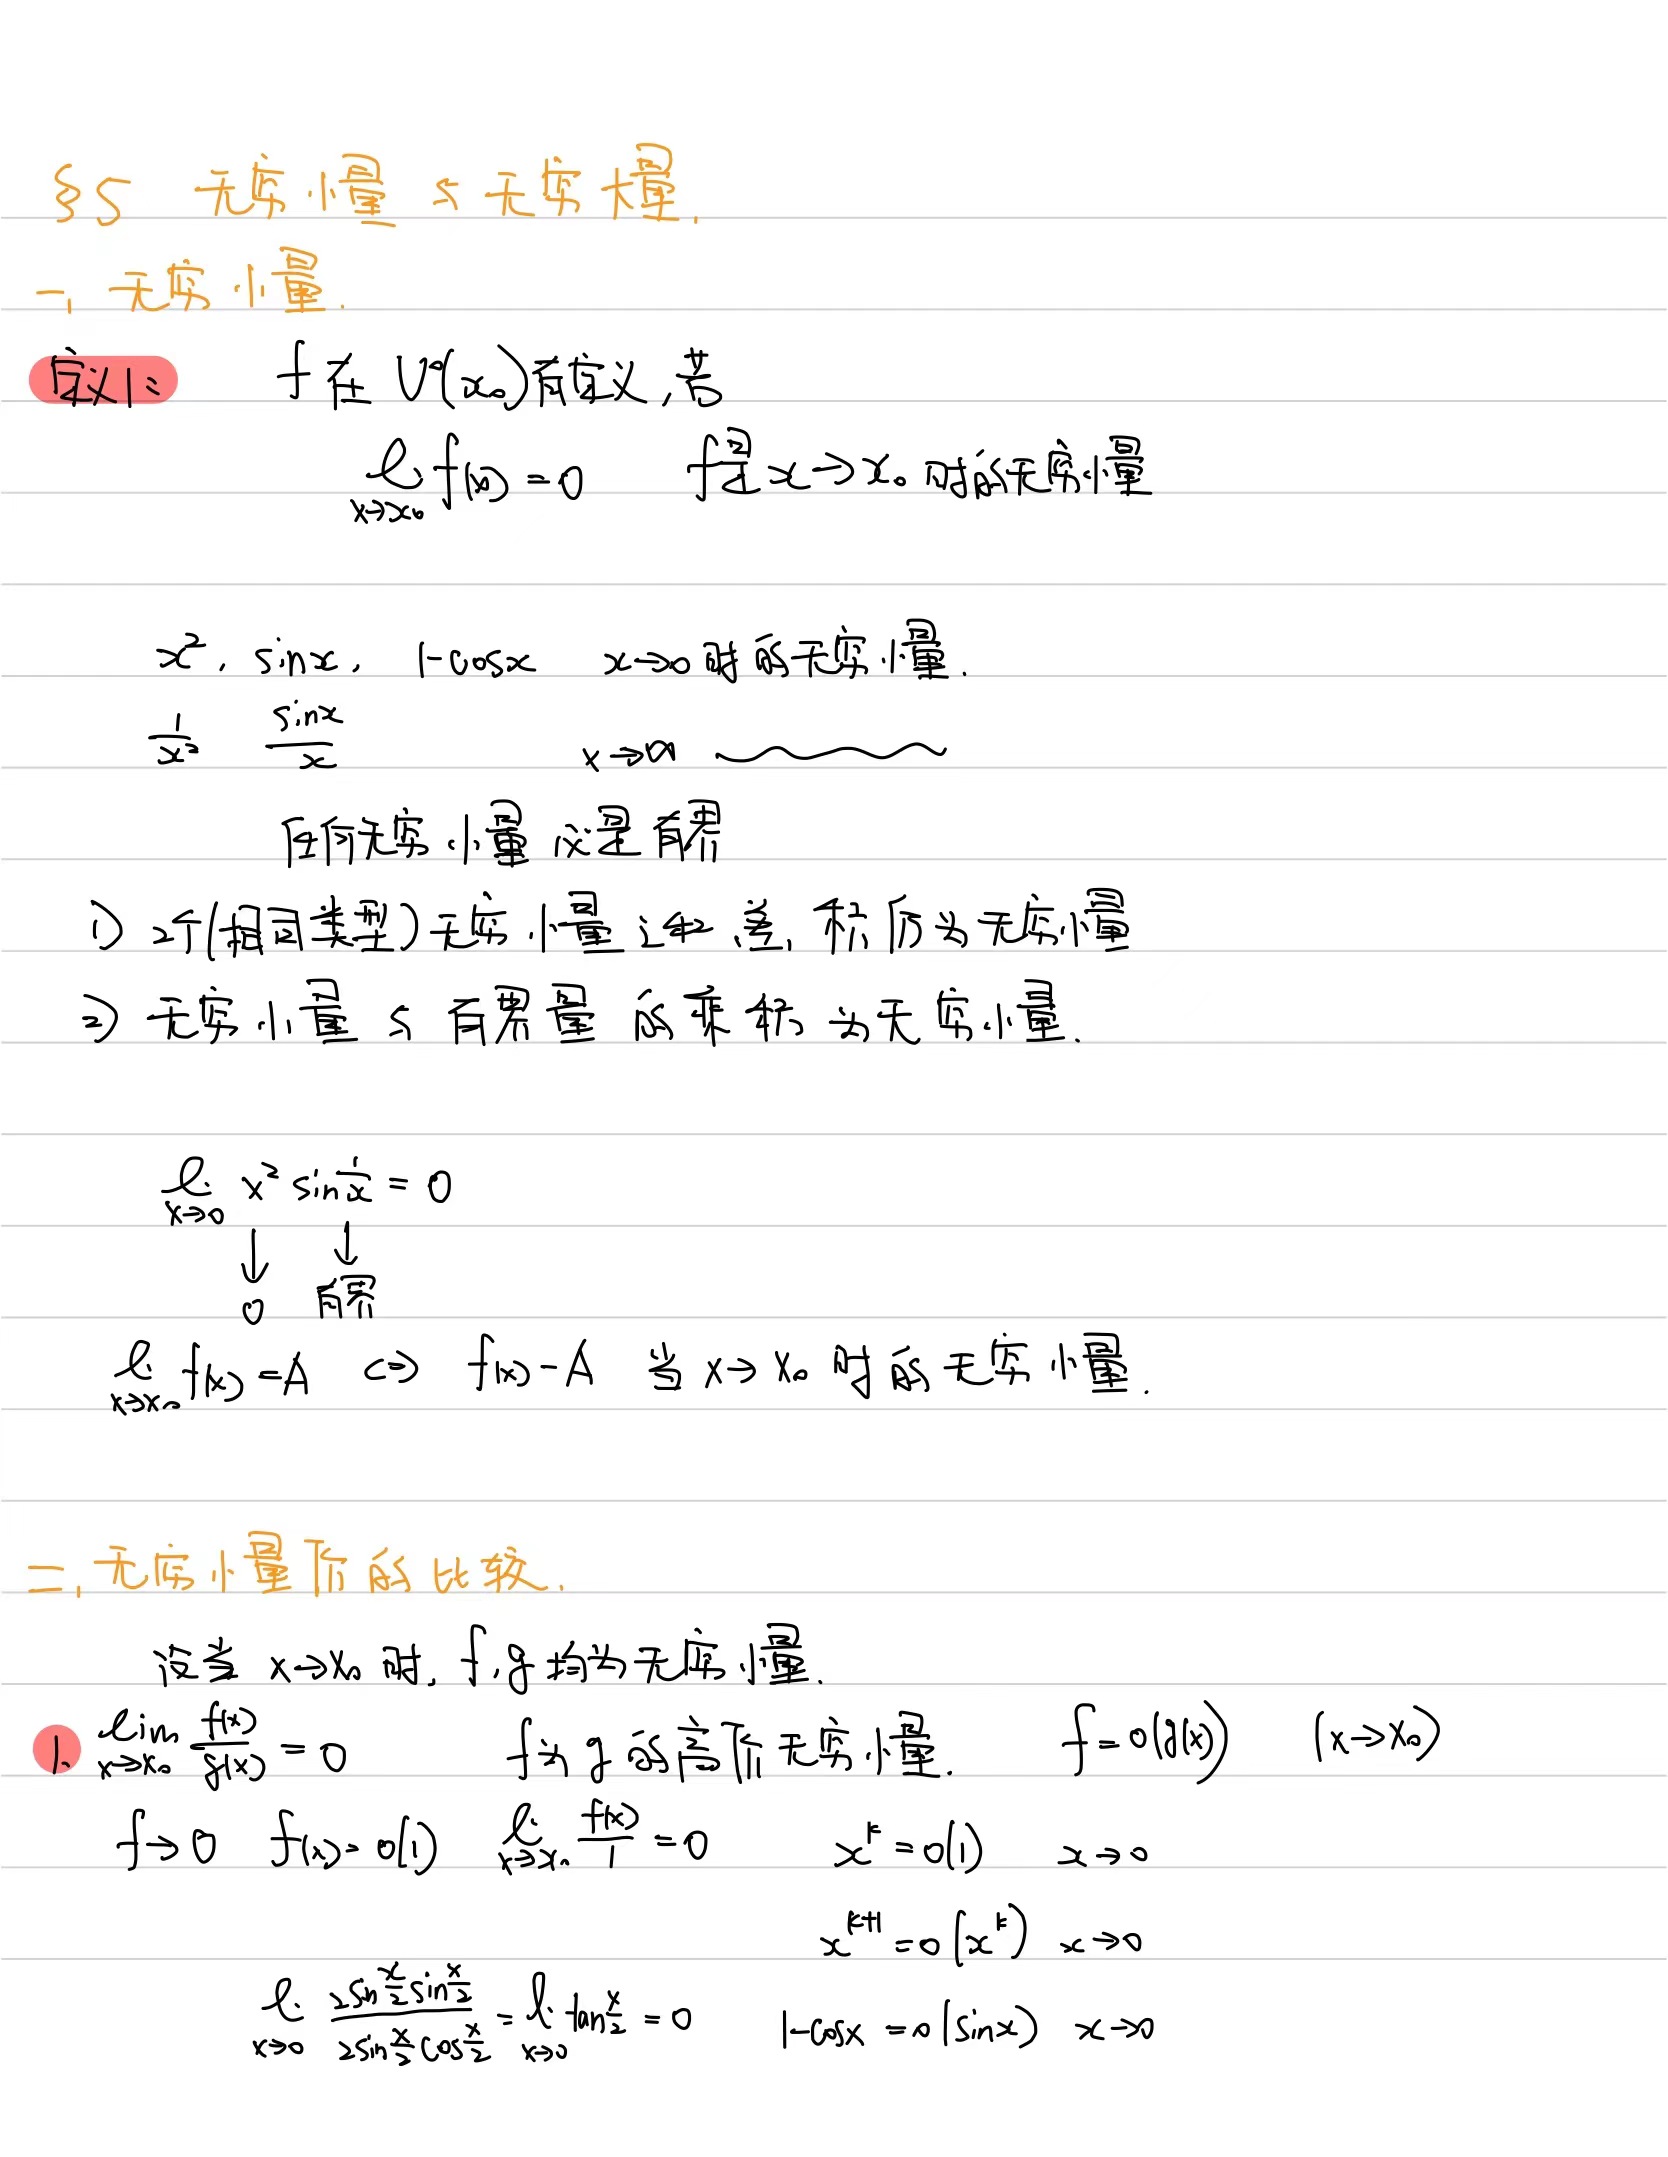 §5 无穷小量与无穷大量.
一、无穷小量.
定义1: f在 U°(x₀)有定义,若
li x→x₀ f(x) = 0 f是 x→x₀ 时的无穷小量
x², sinx, 1-cosx x→0 时的无穷小量.
1/x² sinx/x x→∞ ～～～
任何无穷小量必是有界
1) 2个(相同类型)无穷小量之和、差、积仍为无穷小量
2) 无穷小量与有界量的乘积为无穷小量.
li x→0 x² sin 1/x = 0
↓ ↓
0 有界
li x→x₀ f(x) = A ⇔ f(x) - A 当 x→x₀ 时的无穷小量.
二、无穷小量阶的比较.
设当 x→x₀ 时, f,g均为无穷小量.
1. lim x→x₀ f(x)/g(x) = 0 f为g的高阶无穷小量. f = o(g(x)) (x→x₀)
f→0 f(x) = o(1) li x→x₀ f(x)/1 = 0 xᵏ = o(1) x→0
xᵏ⁺¹ = o(xᵏ) x→0
li x→0 2sin x/2 sin x/2 / 2sin x/2 cos x/2 = li x→0 tan x/2 = 0 1-cosx = o(sinx) x→0